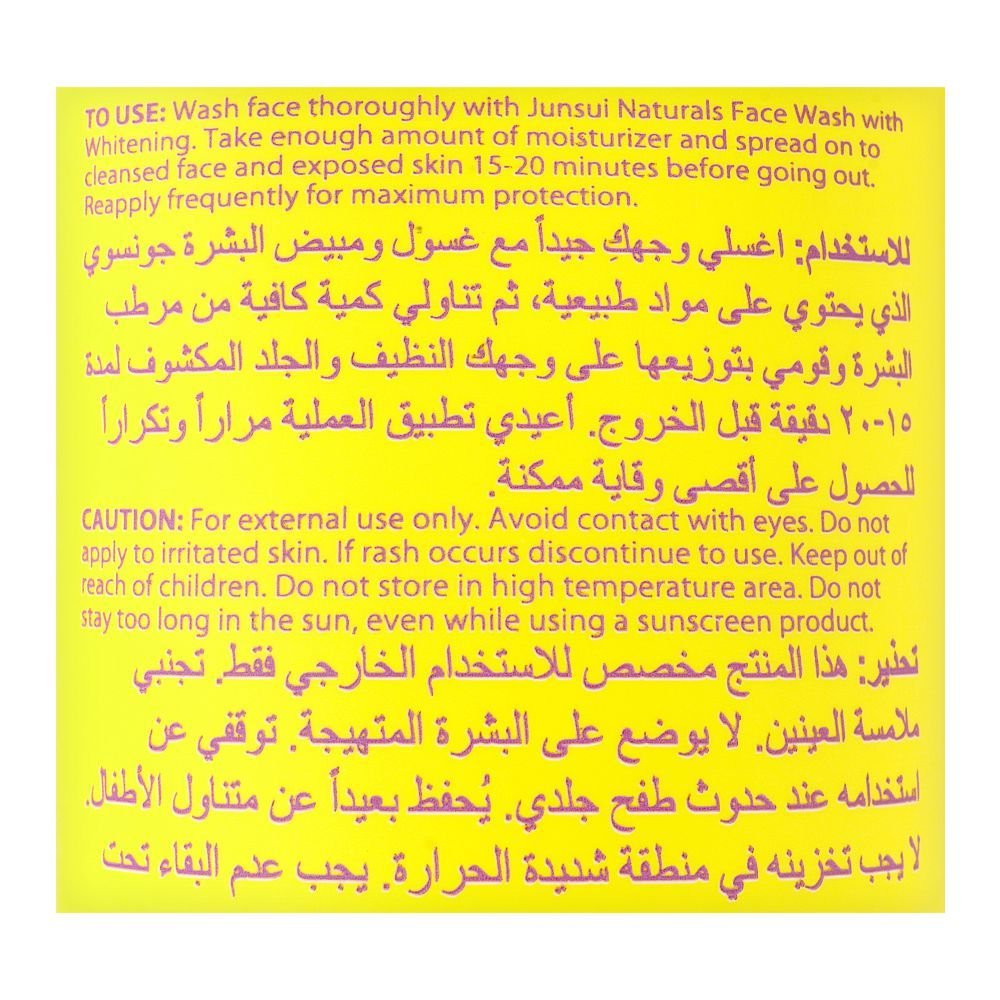 TO USE: Wash face thoroughly with Junsui Naturals Face Wash with
Whitening. Take enough amount of moisturizer and spread on to
cleansed face and exposed skin 15-20 minutes before going out.
Reapply frequently for maximum protection.
للاستخدام: اغسلي وجهكِ جيداً مع غسول ومبيض البشرة جونسوي
الذي يحتوي على مواد طبيعية، ثم تناولي كمية كافية من مرطب
البشرة وقومي بتوزيعها على وجهك النظيف والجلد المكشوف لمدة
١٥-٢٠ دقيقة قبل الخروج. أعيدي تطبيق العملية مراراً وتكراراً
للحصول على أقصى وقاية ممكنة.
CAUTION: For external use only. Avoid contact with eyes. Do not
apply to irritated skin. If rash occurs discontinue to use. Keep out of
reach of children. Do not store in high temperature area. Do not
stay too long in the sun, even while using a sunscreen product.
تحذير: هذا المنتج مخصص للاستخدام الخارجي فقط. تجنبي
ملامسة العينين. لا يوضع على البشرة المتهيجة. توقفي عن
استخدامه عند حدوث طفح جلدي. يُحفظ بعيداً عن متناول الأطفال.
لا يجب تخزينه في منطقة شديدة الحرارة. يجب عدم البقاء تحت